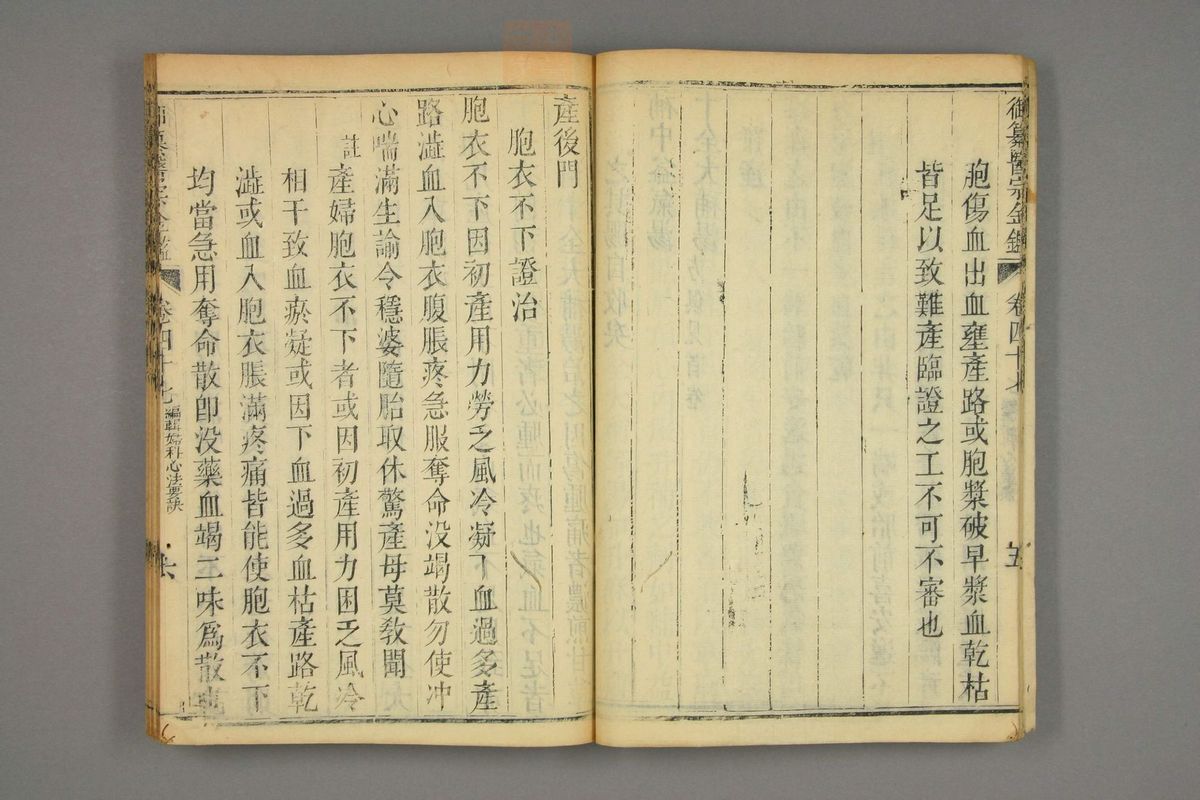 御纂醫宗金鑑 卷四十七 五
胞傷血出血壅產路或胞漿破早漿血乾枯
皆足以致難產臨證之工不可不審也
產後門
胞衣不下證治
胞衣不下因初產用力勞乏風冷凝下血過多產
路澁血入胞衣腹脹疼急服奪命没竭散勿使冲
心喘滿生諭令穩婆隨胎取休驚產母莫教聞
註產婦胞衣不下者或因初產用力困乏風冷
相干致血瘀凝或因下血過多血枯產路乾
澁或血入胞衣脹滿疼痛皆能使胞衣不下
均當急用奪命散卽没藥血竭二味爲散也
卷四十七 編輯婦科心法要訣 六